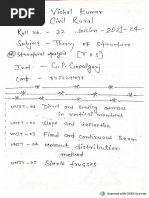 Vishal Kumar
Civil Rural
Roll No. - 22 Session - 2021-24
Subject - Theory of Structure
Structural Analysis [TOS]
Inst - G.P. Gopalganj
Cont -
UNIT-01 Direct and Bending stresses
in vertical members
UNIT-02 Slope and deflection
UNIT-03 Fixed and continuous Beam
UNIT-04 Moment distribution
method
UNIT-05 Simple trusses
Scanned with OKEN Scanner